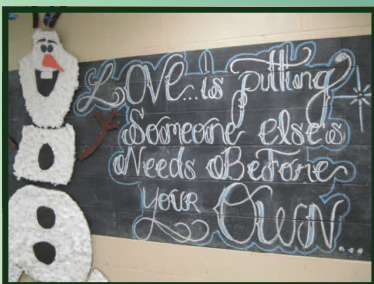 Love... is putting
Someone else's
Needs Before
YOUR OWN...